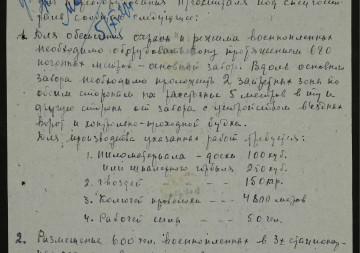 под спецгоспи-
следующее:
1. Для обеспечения охраны и режима военнопленных
необходимо оборудовать зону протяжением 1120
погонных метров – основной забор. Вдоль основного
забора необходимо проложить 2 запретных зоны по
обеим сторонам на расстоянии 5 метров в ту и
другую сторону от забора с устройством въездных
ворот и контрольно-проходной будки.
Для производства указанных работ требуется:
1. Пиломатериала – доски 100 куб.
или шпального горбыля 250 куб.
2. Гвоздей – – 150 кгр.
3. Колючей проволоки – – 4800 метров
4. Рабочей силы – – 50 чел.
2. Размещение 600 чел. военнопленных в 3х стационар-